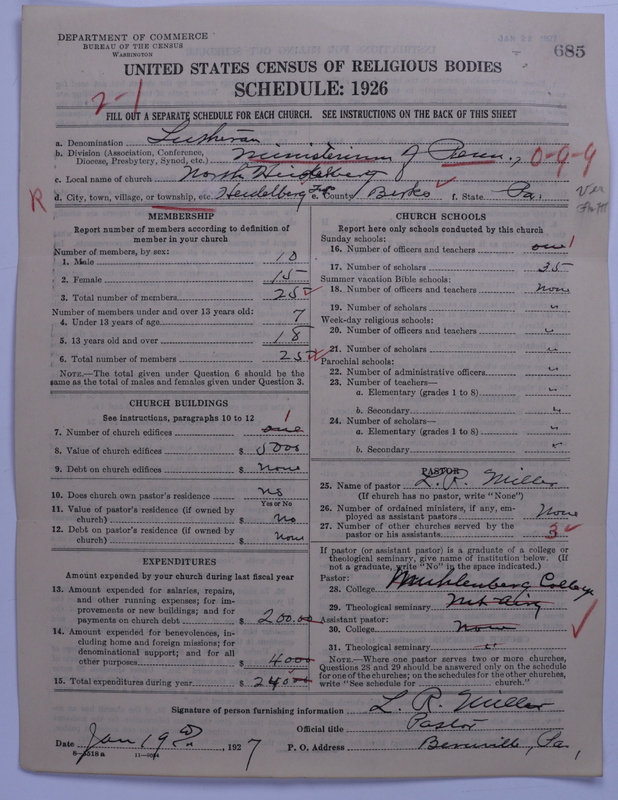 DEPARTMENT OF COMMERCE
BUREAU OF THE CENSUS
WASHINGTON
685
UNITED STATES CENSUS OF RELIGIOUS BODIES
SCHEDULE: 1926
2-1
FILL OUT A SEPARATE SCHEDULE FOR EACH CHURCH. SEE INSTRUCTIONS ON THE BACK OF THIS SHEET
a. Denomination Lutheran
b. Division (Association, Conference,
Diocese, Presbytery, Synod, etc.) Ministerium of Penn., 0-9-9
c. Local name of church North Heidelberg
R d. City, town, village, or township, etc. Heidelberg e. County Berks f. State Pa.
MEMBERSHIP
Report number of members according to definition of
member in your church
Number of members, by sex:
1. Male 10
2. Female 15
3. Total number of members 25
Number of members under and over 13 years old:
4. Under 13 years of age 7
5. 13 years old and over 18
6. Total number of members 25
NOTE.—The total given under Question 6 should be the
same as the total of males and females given under Question 3.
CHURCH BUILDINGS
See instructions, paragraphs 10 to 12
7. Number of church edifices one 1
8. Value of church edifices $ 5000
9. Debt on church edifices $ None
10. Does church own pastor's residence No
Yes or No
11. Value of pastor's residence (if owned by
church) $ No
12. Debt on pastor's residence (if owned by
church) $ None
EXPENDITURES
Amount expended by your church during last fiscal year
13. Amount expended for salaries, repairs,
and other running expenses; for im-
provements or new buildings; and for
payments on church debt $ 200.00
14. Amount expended for benevolences, in-
cluding home and foreign missions; for
denominational support; and for all
other purposes $ 4000
15. Total expenditures during year $ 24000
CHURCH SCHOOLS
Report here only schools conducted by this church
Sunday schools:
16. Number of officers and teachers one 1
17. Number of scholars 35
Summer vacation Bible schools:
18. Number of officers and teachers None
19. Number of scholars "
Week-day religious schools:
20. Number of officers and teachers "
21. Number of scholars "
Parochial schools:
22. Number of administrative officers "
23. Number of teachers—
a. Elementary (grades 1 to 8) "
b. Secondary "
24. Number of scholars—
a. Elementary (grades 1 to 8) "
b. Secondary "
PASTOR
25. Name of pastor L. R. Miller
(If church has no pastor, write "None")
26. Number of ordained ministers, if any, em-
ployed as assistant pastors None
27. Number of other churches served by the
pastor or his assistants 3
If pastor (or assistant pastor) is a graduate of a college or
theological seminary, give name of institution below. (If
not a graduate, write "No" in the space indicated.)
Pastor:
28. College Muhlenberg College
29. Theological seminary Mt. Airy
Assistant pastor:
30. College None
31. Theological seminary "
NOTE.—Where one pastor serves two or more churches,
Questions 28 and 29 should be answered only on the schedule
for one of the churches; on the schedules for the other churches,
write "See schedule for church."
Signature of person furnishing information L. R. Miller
Official title Pastor
Date Jan 19th, 1927 P. O. Address Bernville, Pa.
8—5518 a